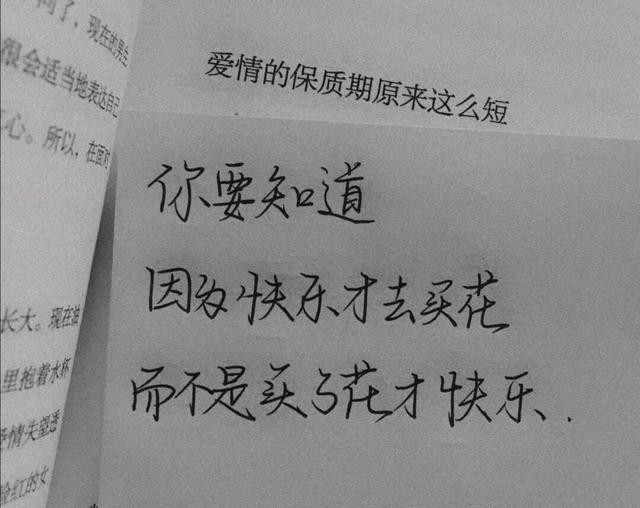 同了，现在的男生
很会适当地表达自己
心。所以，在面对
长大。现在油
里抱着水杯
爱情失望透
脸红的女
爱情的保质期原来这么短
你要知道
因为快乐才去买花
而不是买了花才快乐.